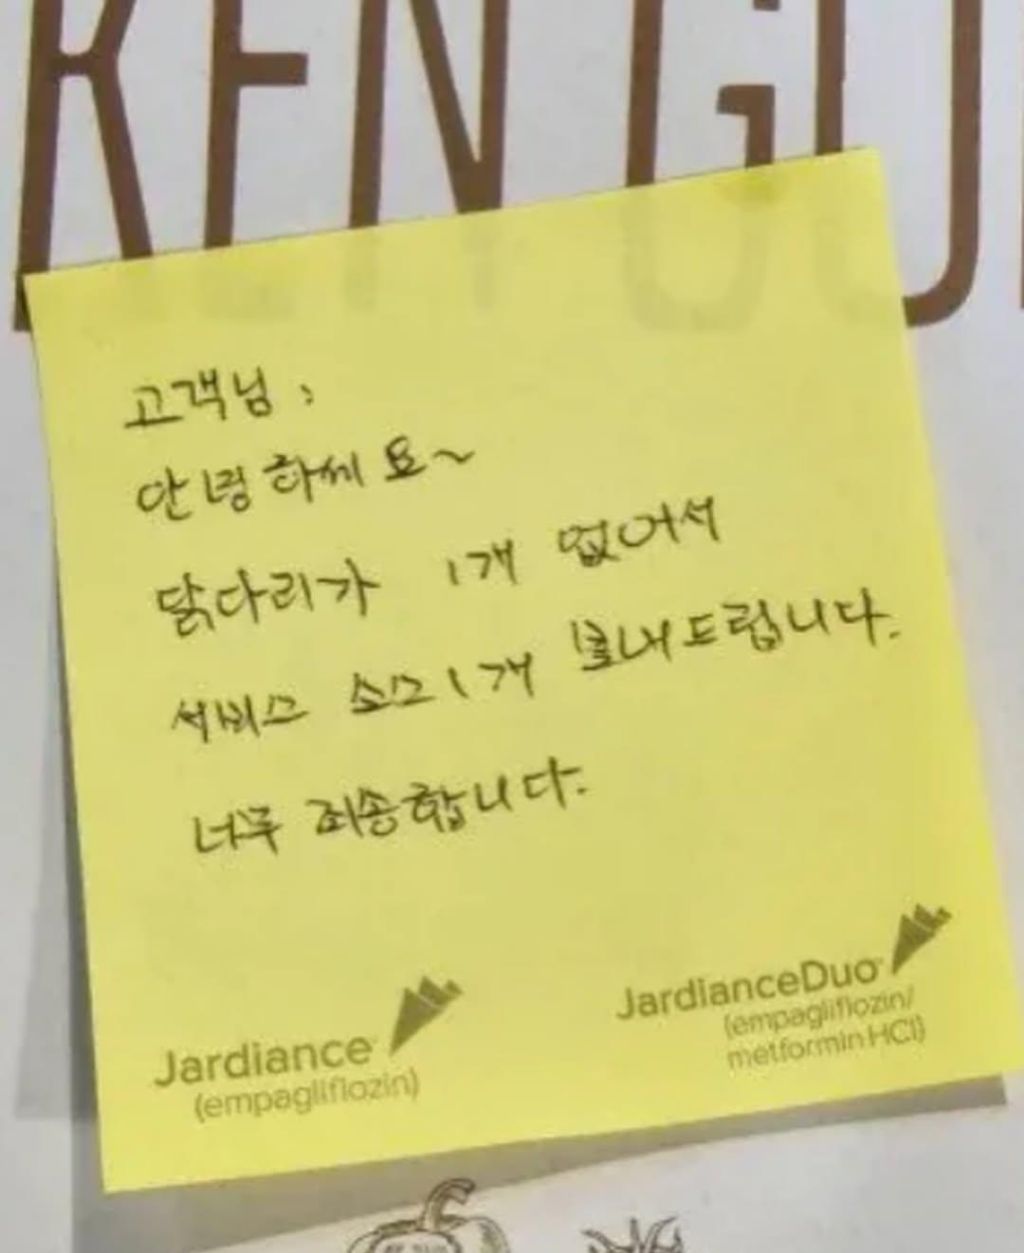 KEN GO
고객님,
안녕하쎄요~
닭다리가 1개 없어서
서비스 소스 1개 보내드립니다.
너무 죄송합니다.
Jardiance
(empagliflozin)
JardianceDuo
(empagliflozin/
metformin HCl)